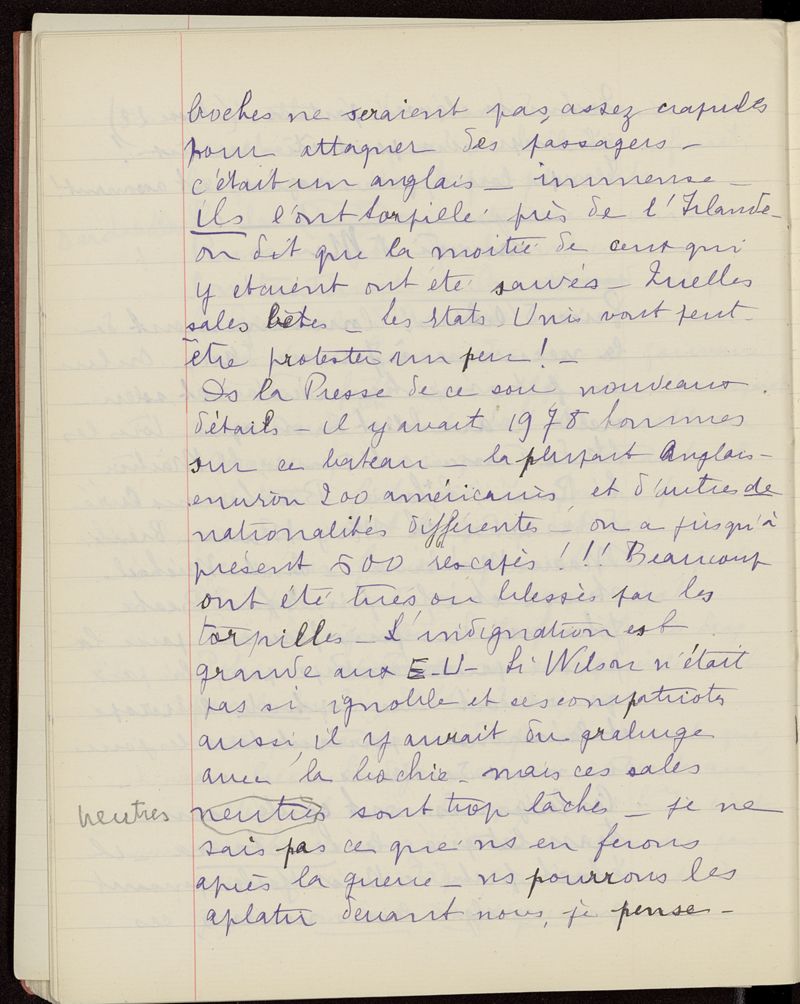 boches ne seraient pas, assez crapules
pour attaquer des passagers –
c'était un anglais – immense –
ils l'ont torpillé près de l'Irlande –
on dit que la moitié de ceux qui
y etaient ont été sauvés – Quelles
sales bêtes – les Etats Unis vont peut-
être protester un peu ! –
Ds la Presse de ce soir nouveaux
détails – il y avait 1978 hommes
sur ce bateau – la plupart Anglais –
environ 200 américains et d'autres de
nationalités différentes – on a jusqu'à
présent 500 rescapés !!! Beaucoup
ont été tués, ou blessés par les
torpilles – L'indignation est
grande aux E-U – Si Wilson n'était
pas si ignoble et ses compatriotes
aussi, il y aurait du grabuge
avec la bochie – mais ces sales
neutres neutres sont trop lâches – je ne
sais pas ce que ns en ferons
après la guerre – ns pourrons les
aplatir devant nous, je pense –